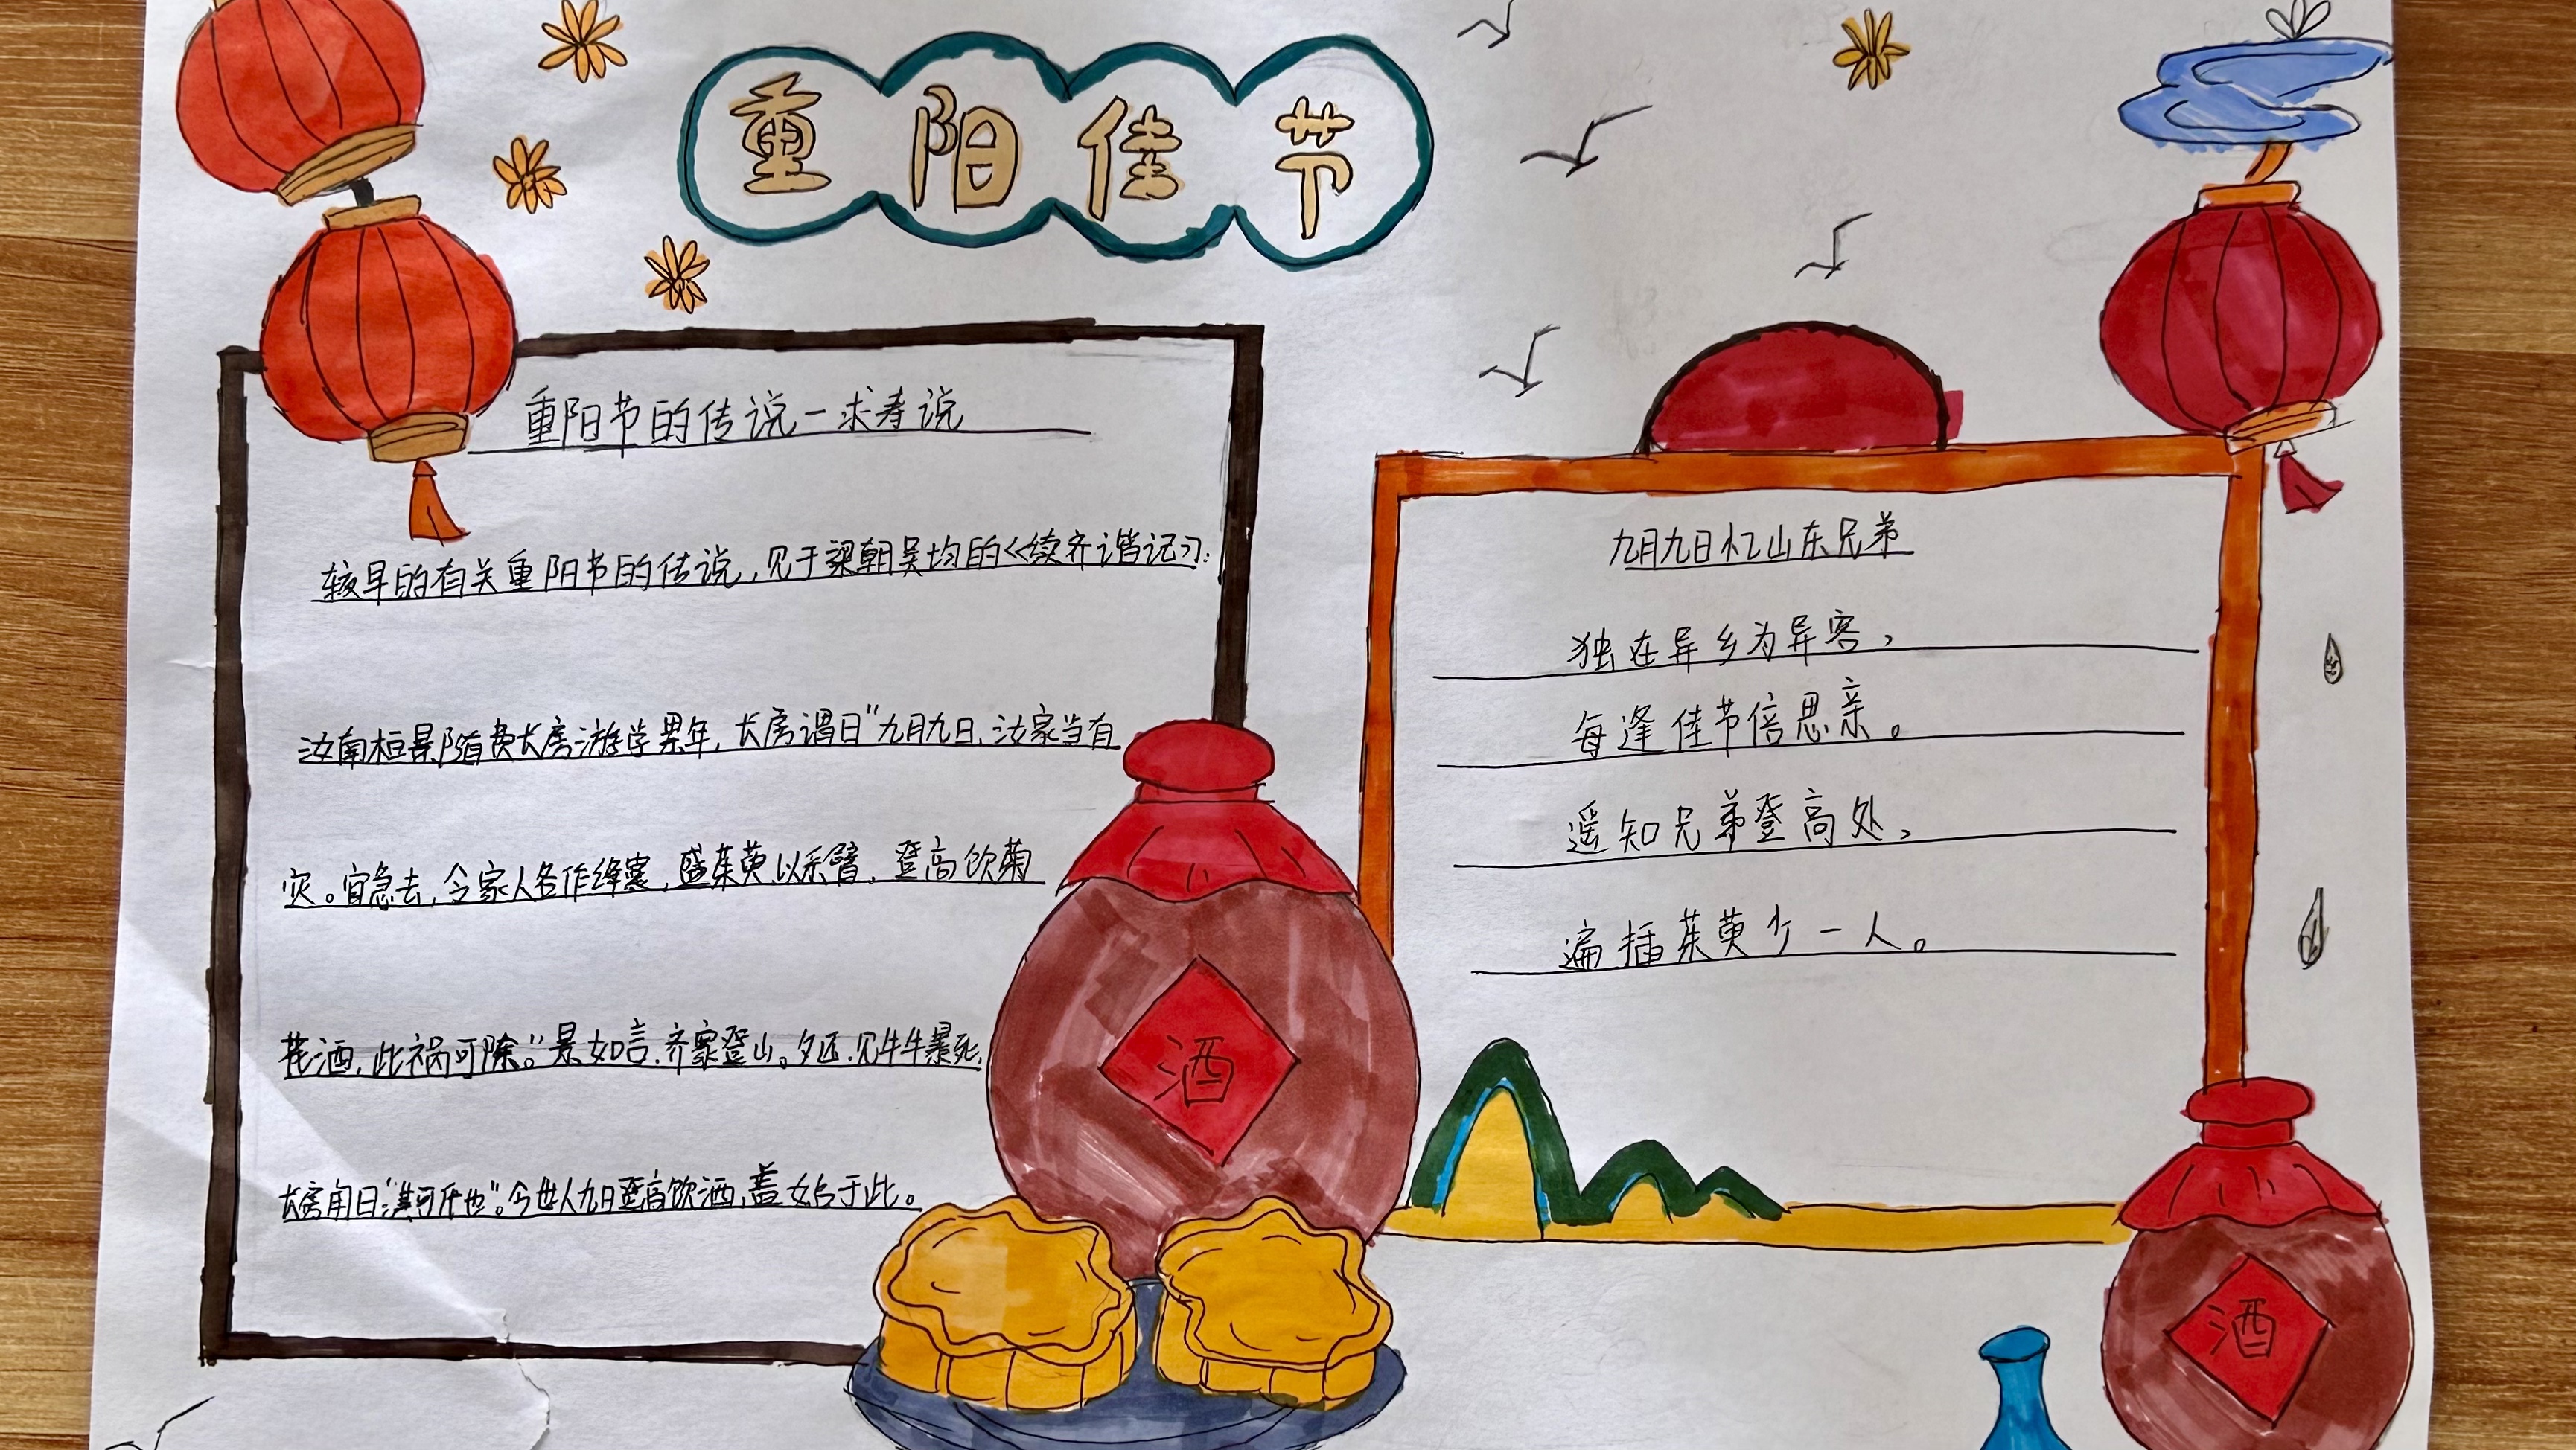 重阳佳节
重阳节的传说一求寿说
较早的有关重阳节的传说,见于梁朝吴均的《续齐谐记》:
汝南桓景随费长房游学累年,长房谓曰"九月九日,汝家当有
灾。宜急去,令家人各作绛囊,盛茱萸,以系臂,登高饮菊
花酒,此祸可除。"景如言,齐家登山。夕还,见牛牛暴死,
长房闻曰"此可代也"。今世人九日登高饮酒,盖始于此。
九月九日忆山东兄弟
独在异乡为异客,
每逢佳节倍思亲。
遥知兄弟登高处,
遍插茱萸少一人。
酒
酒